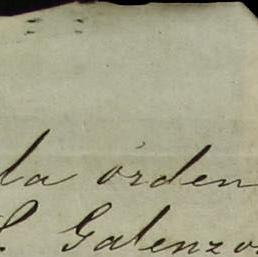 la órden
S. Galenzo